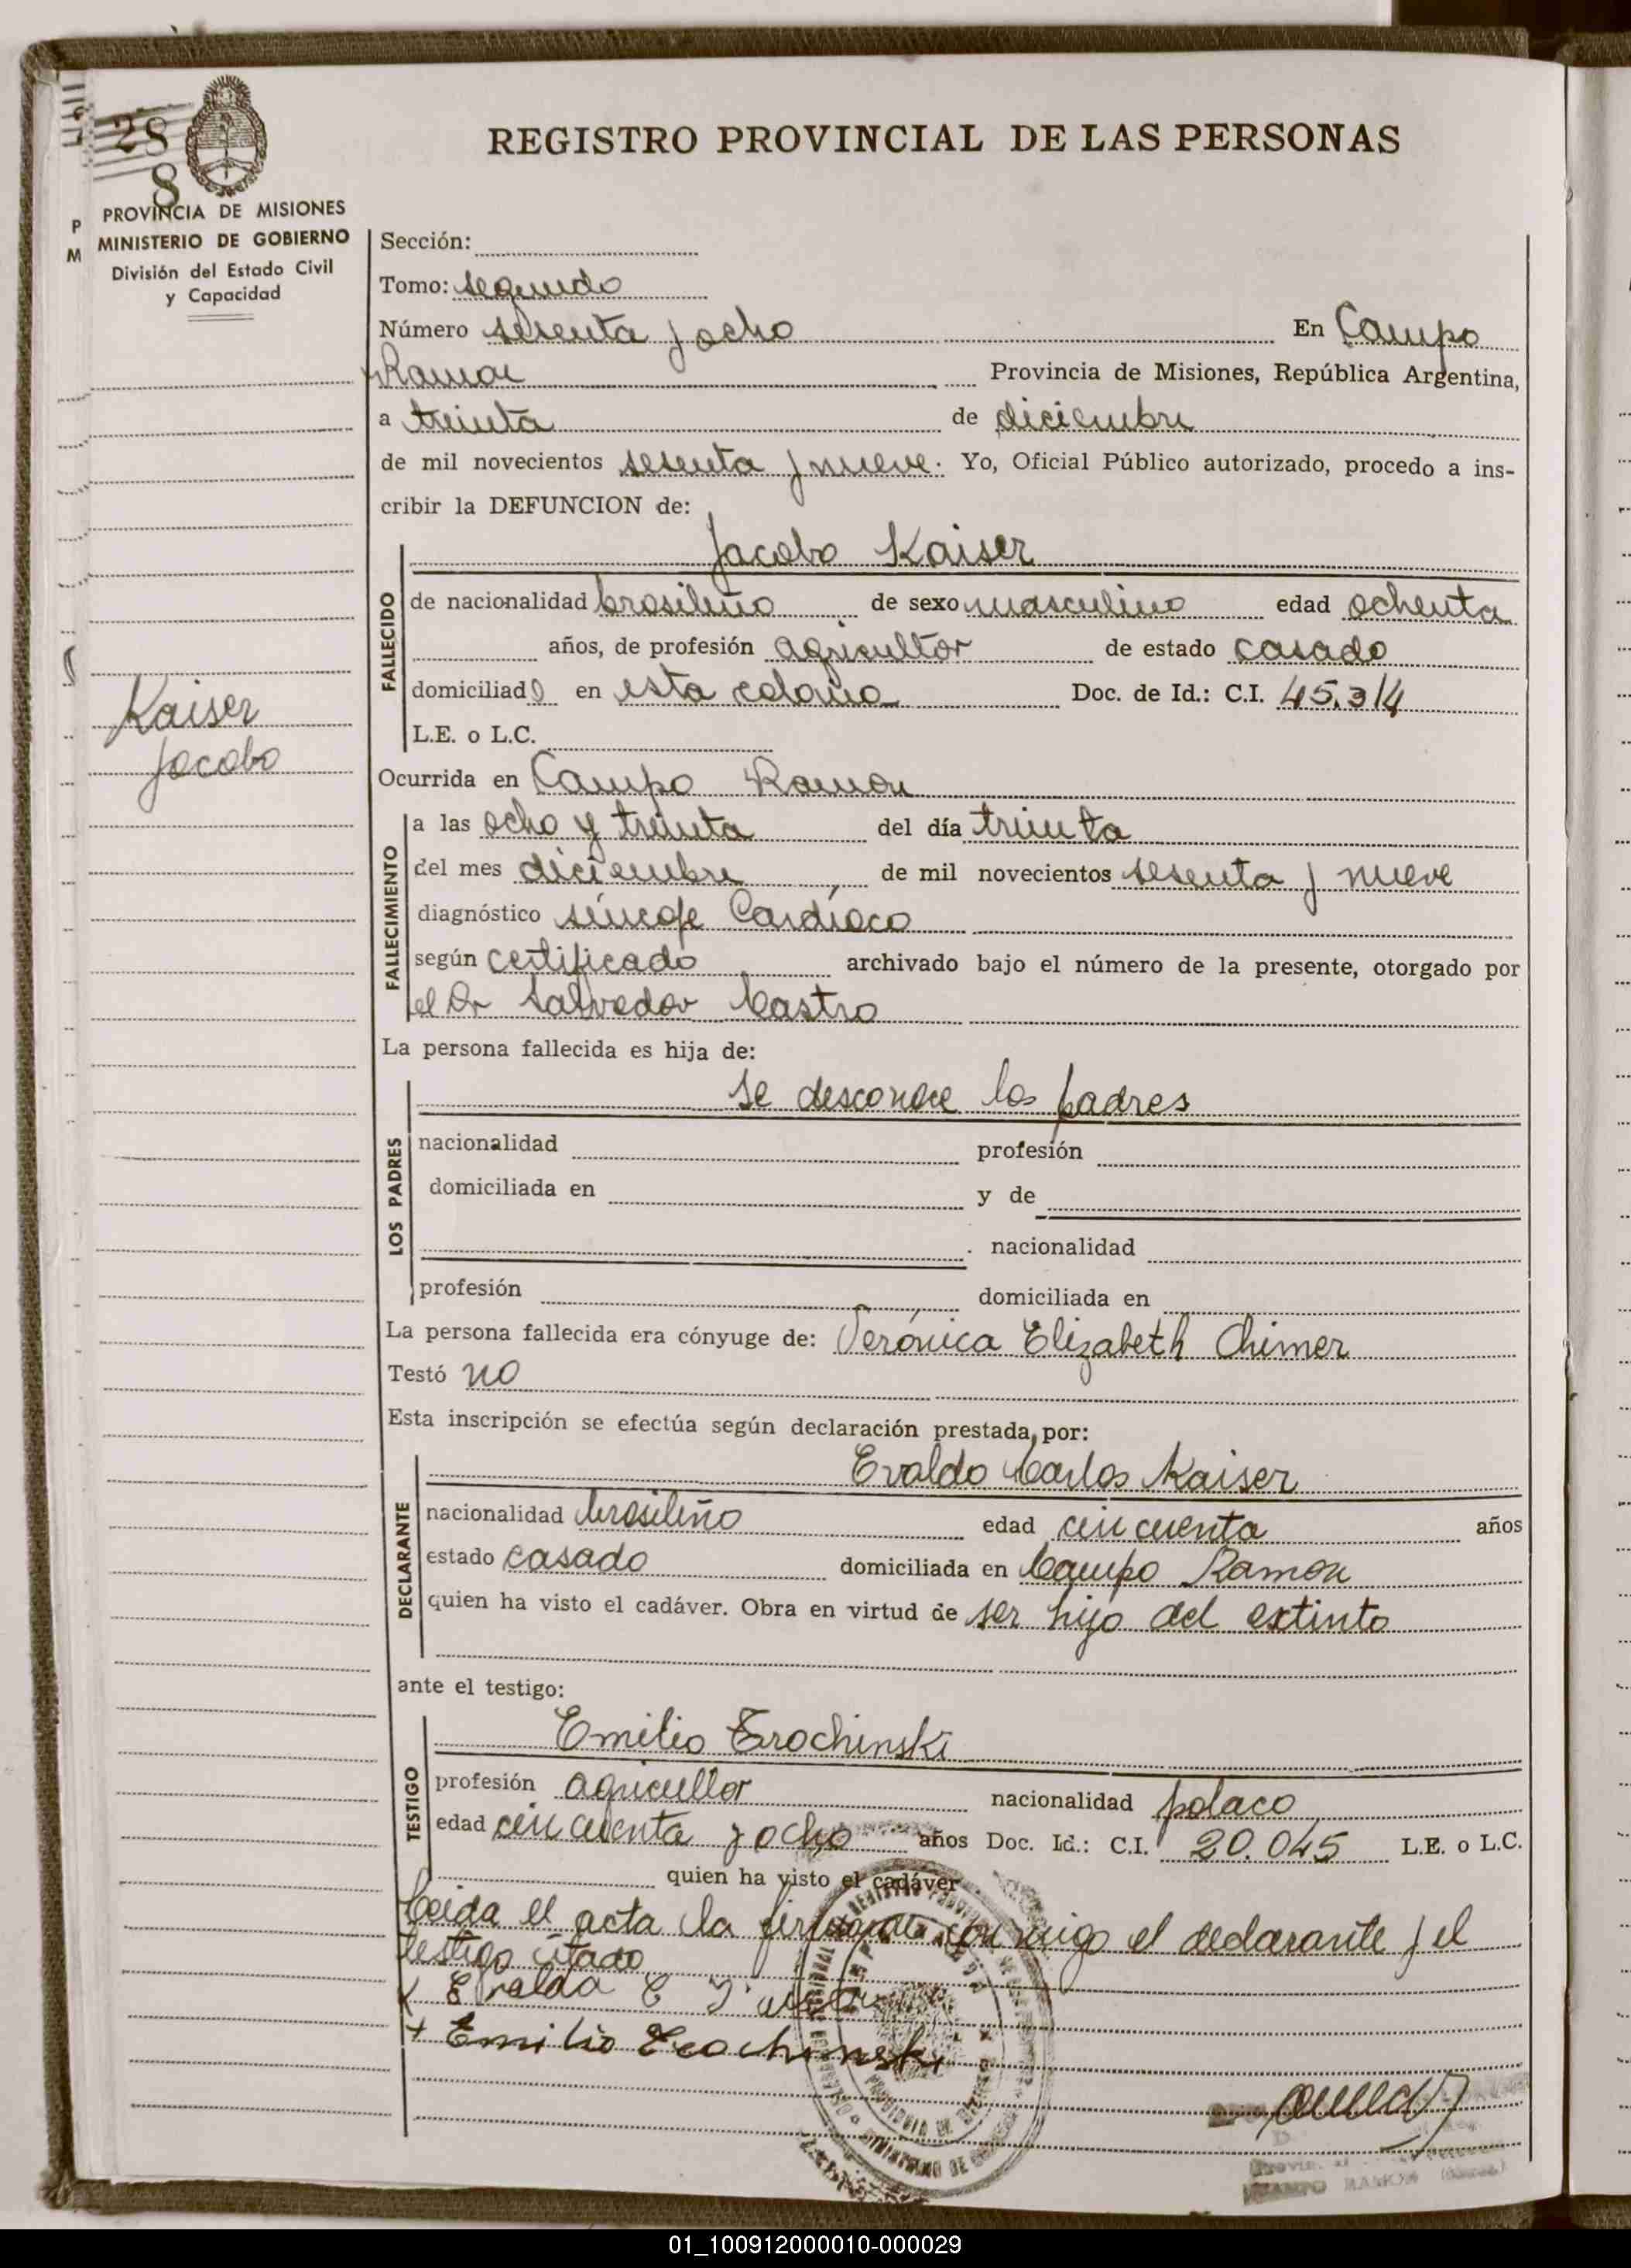 28
8
PROVINCIA DE MISIONES
MINISTERIO DE GOBIERNO
División del Estado Civil
y Capacidad
P
M
REGISTRO PROVINCIAL DE LAS PERSONAS
Sección:
Tomo: segundo
Número sesenta y ocho En Campo
Ramon Provincia de Misiones, República Argentina,
a treinta de diciembre
de mil novecientos sesenta y nueve. Yo, Oficial Público autorizado, procedo a ins-
cribir la DEFUNCION de:
Jacobo Kaiser
FALLECIDO
de nacionalidad brasileño de sexo masculino edad ochenta
años, de profesión agricultor de estado casado
domiciliado en esta colonia Doc. de Id.: C.I. 45.314
L.E. o L.C.
Kaiser
Jacobo
Ocurrida en Campo Ramon
FALLECIMIENTO
a las ocho y treinta del día treinta
del mes diciembre de mil novecientos sesenta y nueve
diagnóstico síncope Cardíaco
según certificado archivado bajo el número de la presente, otorgado por
el Dr Salvador Castro
La persona fallecida es hija de:
se desconoce los padres
LOS PADRES
nacionalidad profesión
domiciliada en y de
nacionalidad
profesión domiciliada en
La persona fallecida era cónyuge de: Verónica Elizabeth Chimer
Testó no
Esta inscripción se efectúa según declaración prestada, por:
Evaldo Carlos Kaiser
DECLARANTE
nacionalidad brasileño edad cincuenta años
estado casado domiciliada en Campo Ramon
quien ha visto el cadáver. Obra en virtud de ser hijo del extinto
ante el testigo:
Emilio Erochinski
TESTIGO
profesión agricultor nacionalidad polaco
edad cincuenta y ocho años Doc. Id.: C.I. 20.045 L.E. o L.C.
quien ha visto el cadáver
Leida el acta la firman conmigo el declarante y el
testigo citado
x Evaldo C
+ Emilio Erochinski
CAMPO RAMON
01_100912000010-000029